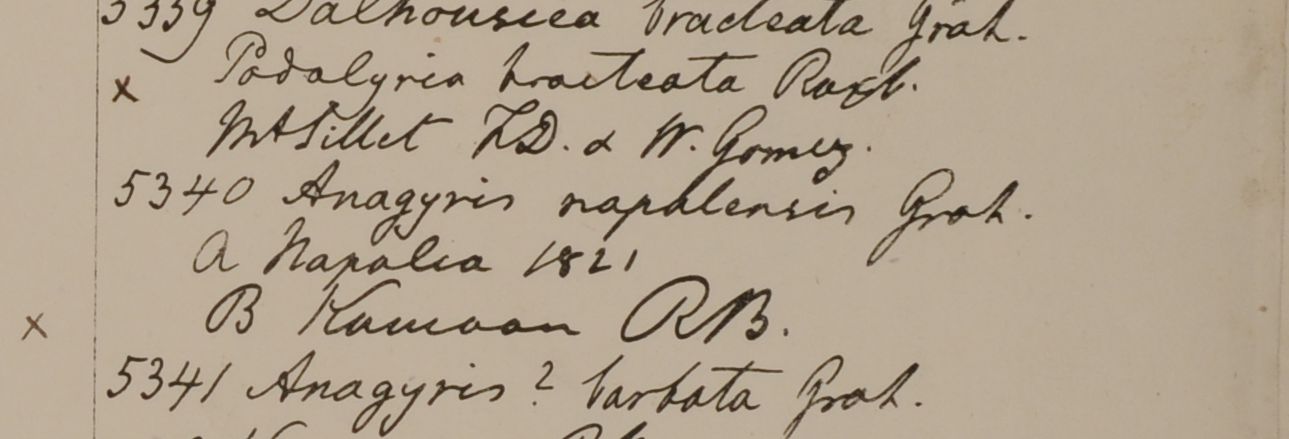 5339 Dalhousiea bracteata Grah.
x Podalyria bracteata Roxb.
Mt Sillet FD. & W. Gomez.
5340 Anagyris napalensis Grah.
A Napalia 1821
x B Kamaon RB.
5341 Anagyris? barbata Grah.